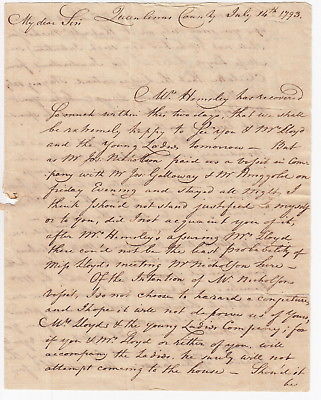 My dear Sir Queen Anns County July 14th 1793.
Mrs. Hemsley has recovered
so much within this two days, that we shall
be extremely happy to see you & Mrs Lloyd
and the Young Ladies tomorrow — But
as Mr Jos. Nicholson paid us a visit in Com
pany with Mr Jas Galloway & Mr Ringgold on
friday Evening and stayed all Night, I
think I should not stand justified to myself
or to you, did I not acquaint you of it,
after Mr Hemsley's assuring Mrs Lloyd
there could not be the least probability of
Miss Lloyds meeting Mr Nicholson here —
Of the Intention of Mr. Nicholsons
visit, I do not choose to hazard a conjecture,
and I hope it will not deprive us of Yours,
Mrs Lloyds & the young Ladies Company; for
if you & Mrs Lloyd or either of you, will
accompany the Ladies, he surely will not
attempt comeing to the house — Should it
be